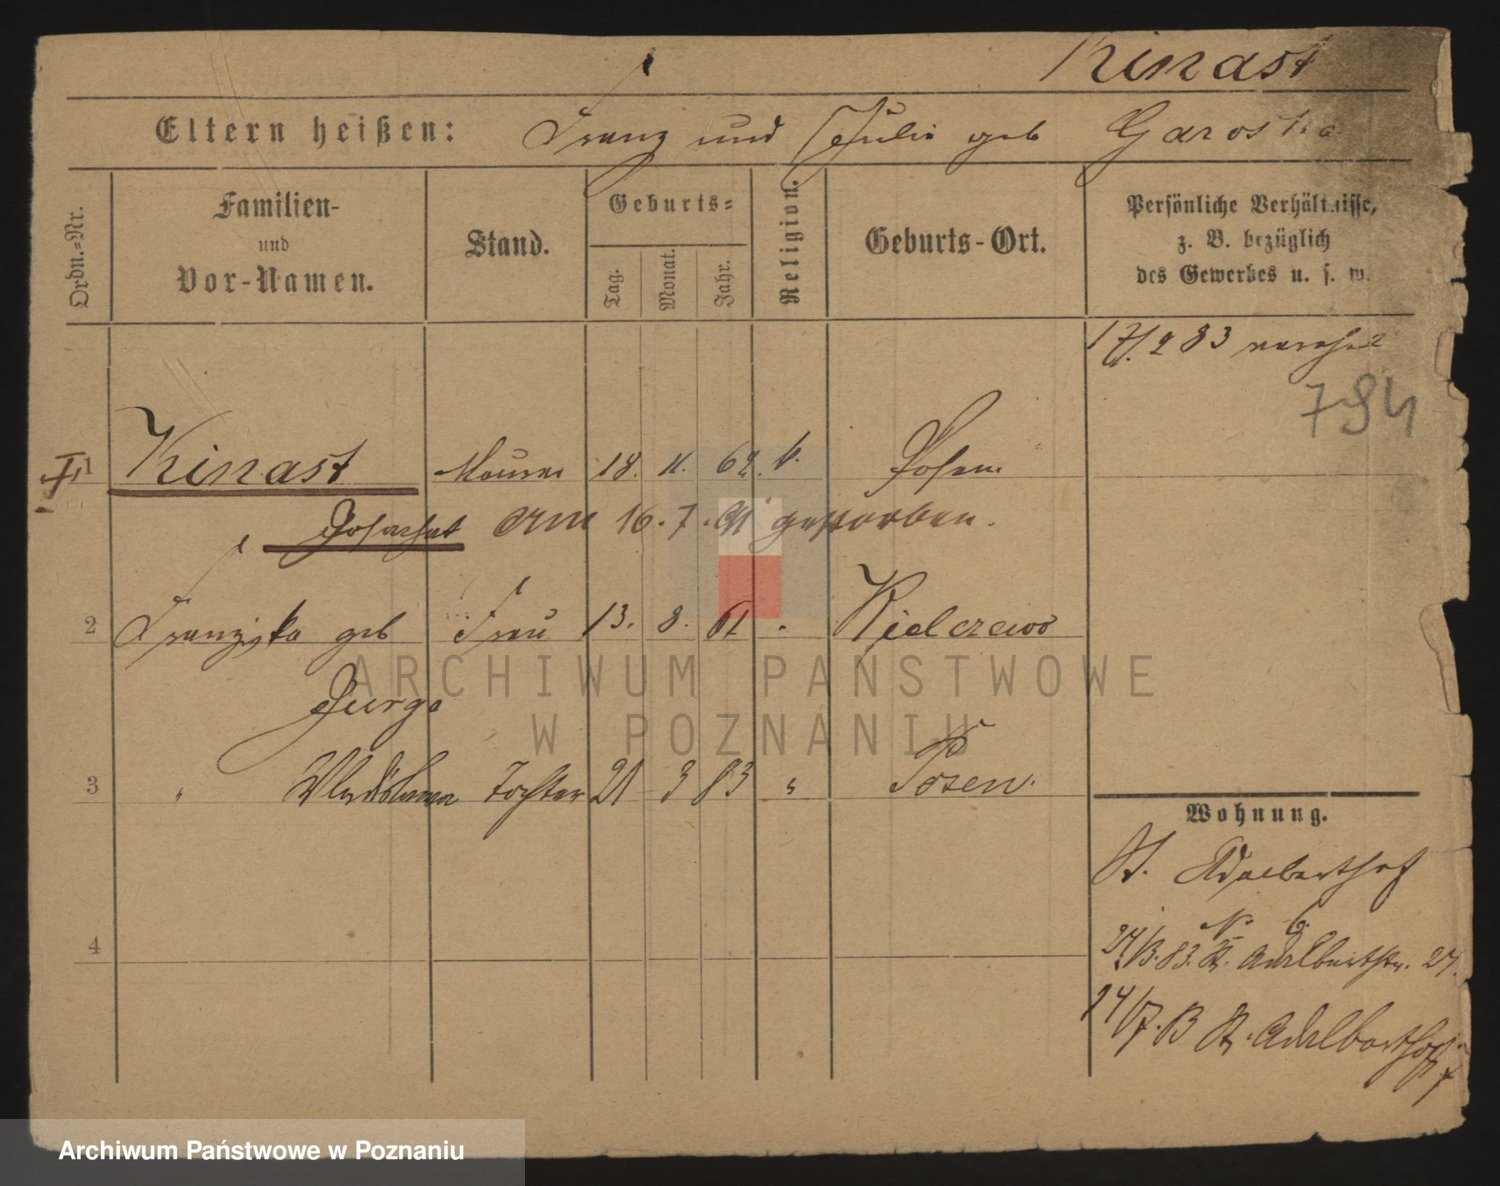 Kinast
Eltern heißen: Franz und Julie geb Garoska
Ordn.=Nr.
Familien-
und
Vor-Namen.
Stand.
Geburts=
Tag.
Monat.
Jahr.
Religion.
Geburts-Ort.
Persönliche Verhältnisse,
z. B. bezüglich
des Gewerbes u. s. w.
17/2 83
794
1 Kinast Maurer 18. 62. k. Posen
am 16. 7. 91 gestorben.
2 Franziska geb Frau 13. 8. 61 Kielczewo
Jurga
3 " Tochter 21 3 83 " Posen.
Wohnung.
St. Adalberthof
24/3. 83. St. Adalbertstr. 27.
4
14/7. St. Adalberthof
ARCHIWUM PAŃSTWOWE
W POZNANIU
Archiwum Państwowe w Poznaniu